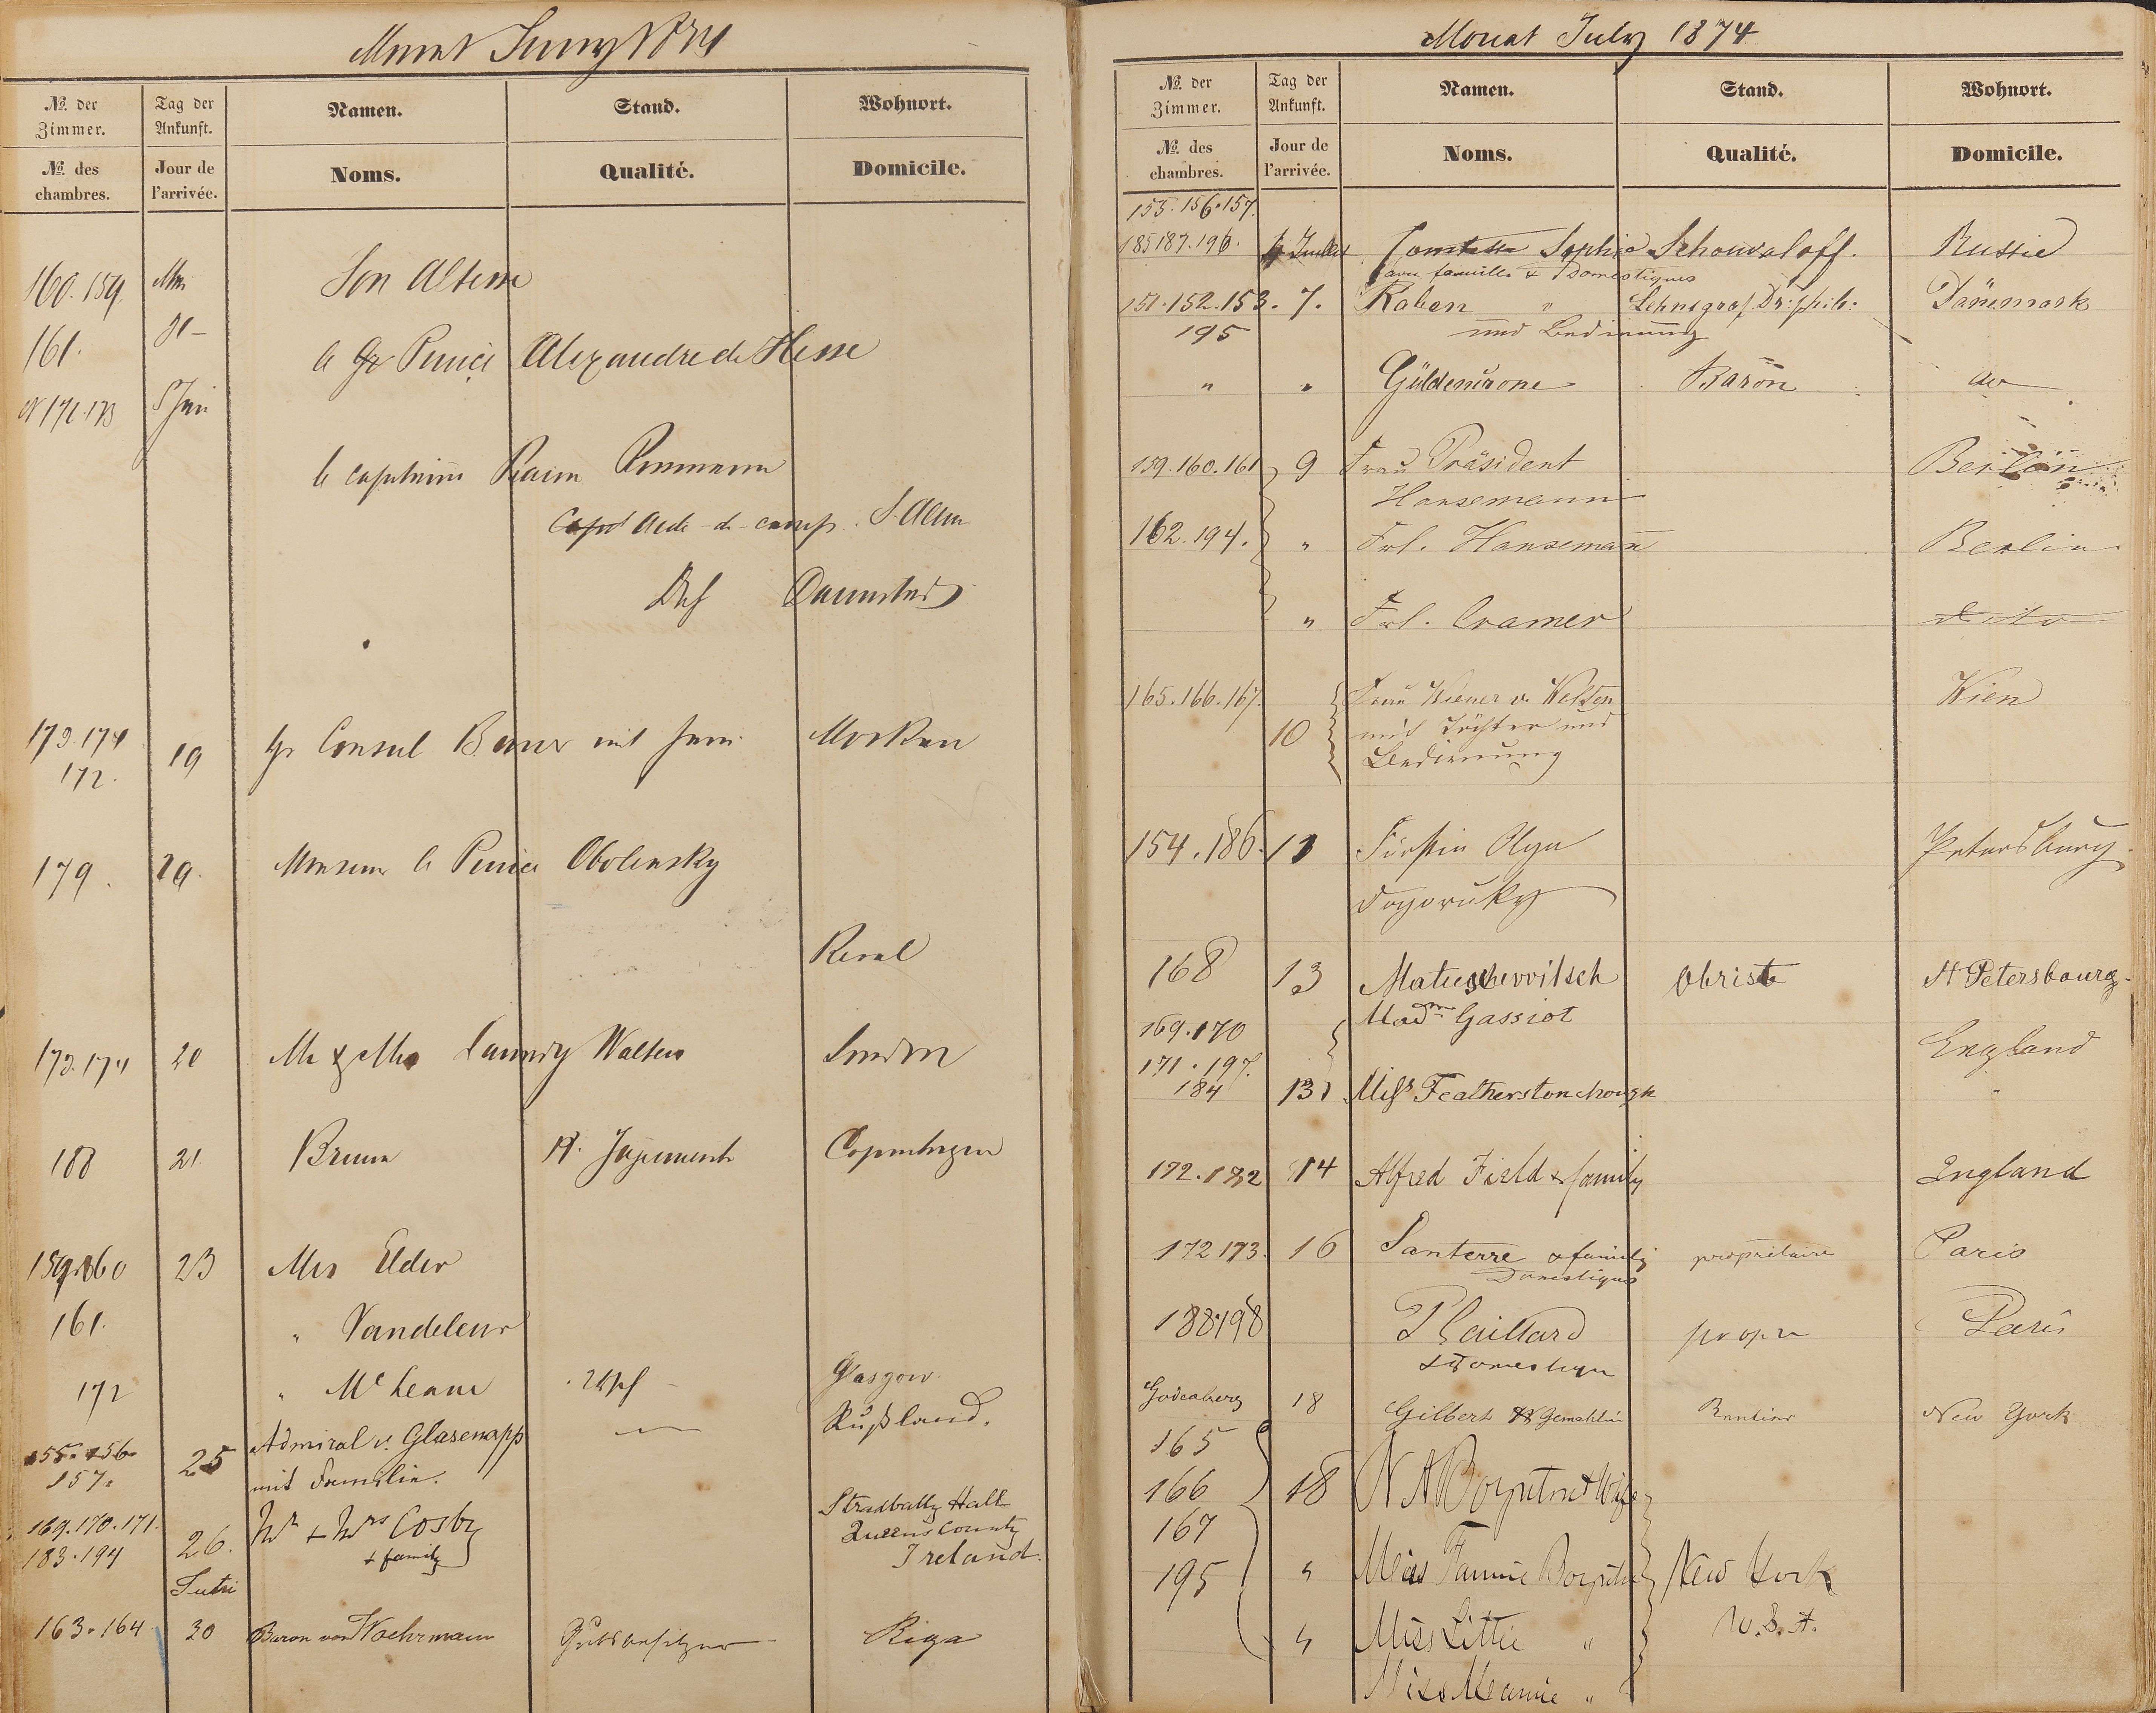 Monat Juny 1874
No. der Zimmer. Tag der Ankunft. Namen. Stand. Wohnort.
No. des chambres. Jour de l'arrivée. Noms. Qualité. Domicile.
160.159 Son Altesse
161. le Prince Alexandre de Hesse
5 Juin
le capitaine
Aide-de-camp
173.174 19 Hr Consul mit Fam. Moskau
172.
179. 29. Monsieur le Prince Obolensky
Reval
173.174 20 Mr & Mrs Walters London
188 21. Bruun Copenhagen
159.160 23 Mrs Elder
161. " Vandeleur
172 " McLeane Glasgow
155.156 25 Admiral v. Glasenapp Rußland.
157. mit Familie.
169.170.171. 26. Mr & Mrs Cosby Stradbally Hall
183.194 & family Queens County
Ireland.
163.164 30 Baron von Woehrmann Gutsbesitzer Riga
Monat July 1874
No. der Zimmer. Tag der Ankunft. Namen. Stand. Wohnort.
No. des chambres. Jour de l'arrivée. Noms. Qualité. Domicile.
155.156.157.
185 187.196. Comtesse Sophie Schouvaloff. Russie
avec famille & Domestiques
151.152.153. 7. Raben " Lehnsgraf Dr: phil: Dänemark
195 und Bedienung
" " Güldencrone Baron do
159.160.161 9 Frau Präsident Berlin
Hansemann
162.194. " Frl. Hansemann Berlin
" Frl. Cramer dito
165.166.167. Frau Wiener v. Welten Wien
10 mit Töchter und
Bedienung
154.186. 11 Fürstin Olga Petersburg.
Dogoruky
168 13 Matueschevvitsch Obrist St Petersbourg.
169.170 Madme Gassiot England
171.197.
184 13 Miss Featherstonehough "
172.182 14 Alfred Field & family England
172 173. 16 Santerre & family propriétaire Paris
Domestiques
188.198 Paillard propre Paris
& Domestique
Godesberg 18 Gilbert & Gemahlin Rentier New York
165
166 18 N A Boynton & Wife
167
195 " Miss Fannie Boynton New York
" Miss Littie " U.S.A.
Miss Mamie "